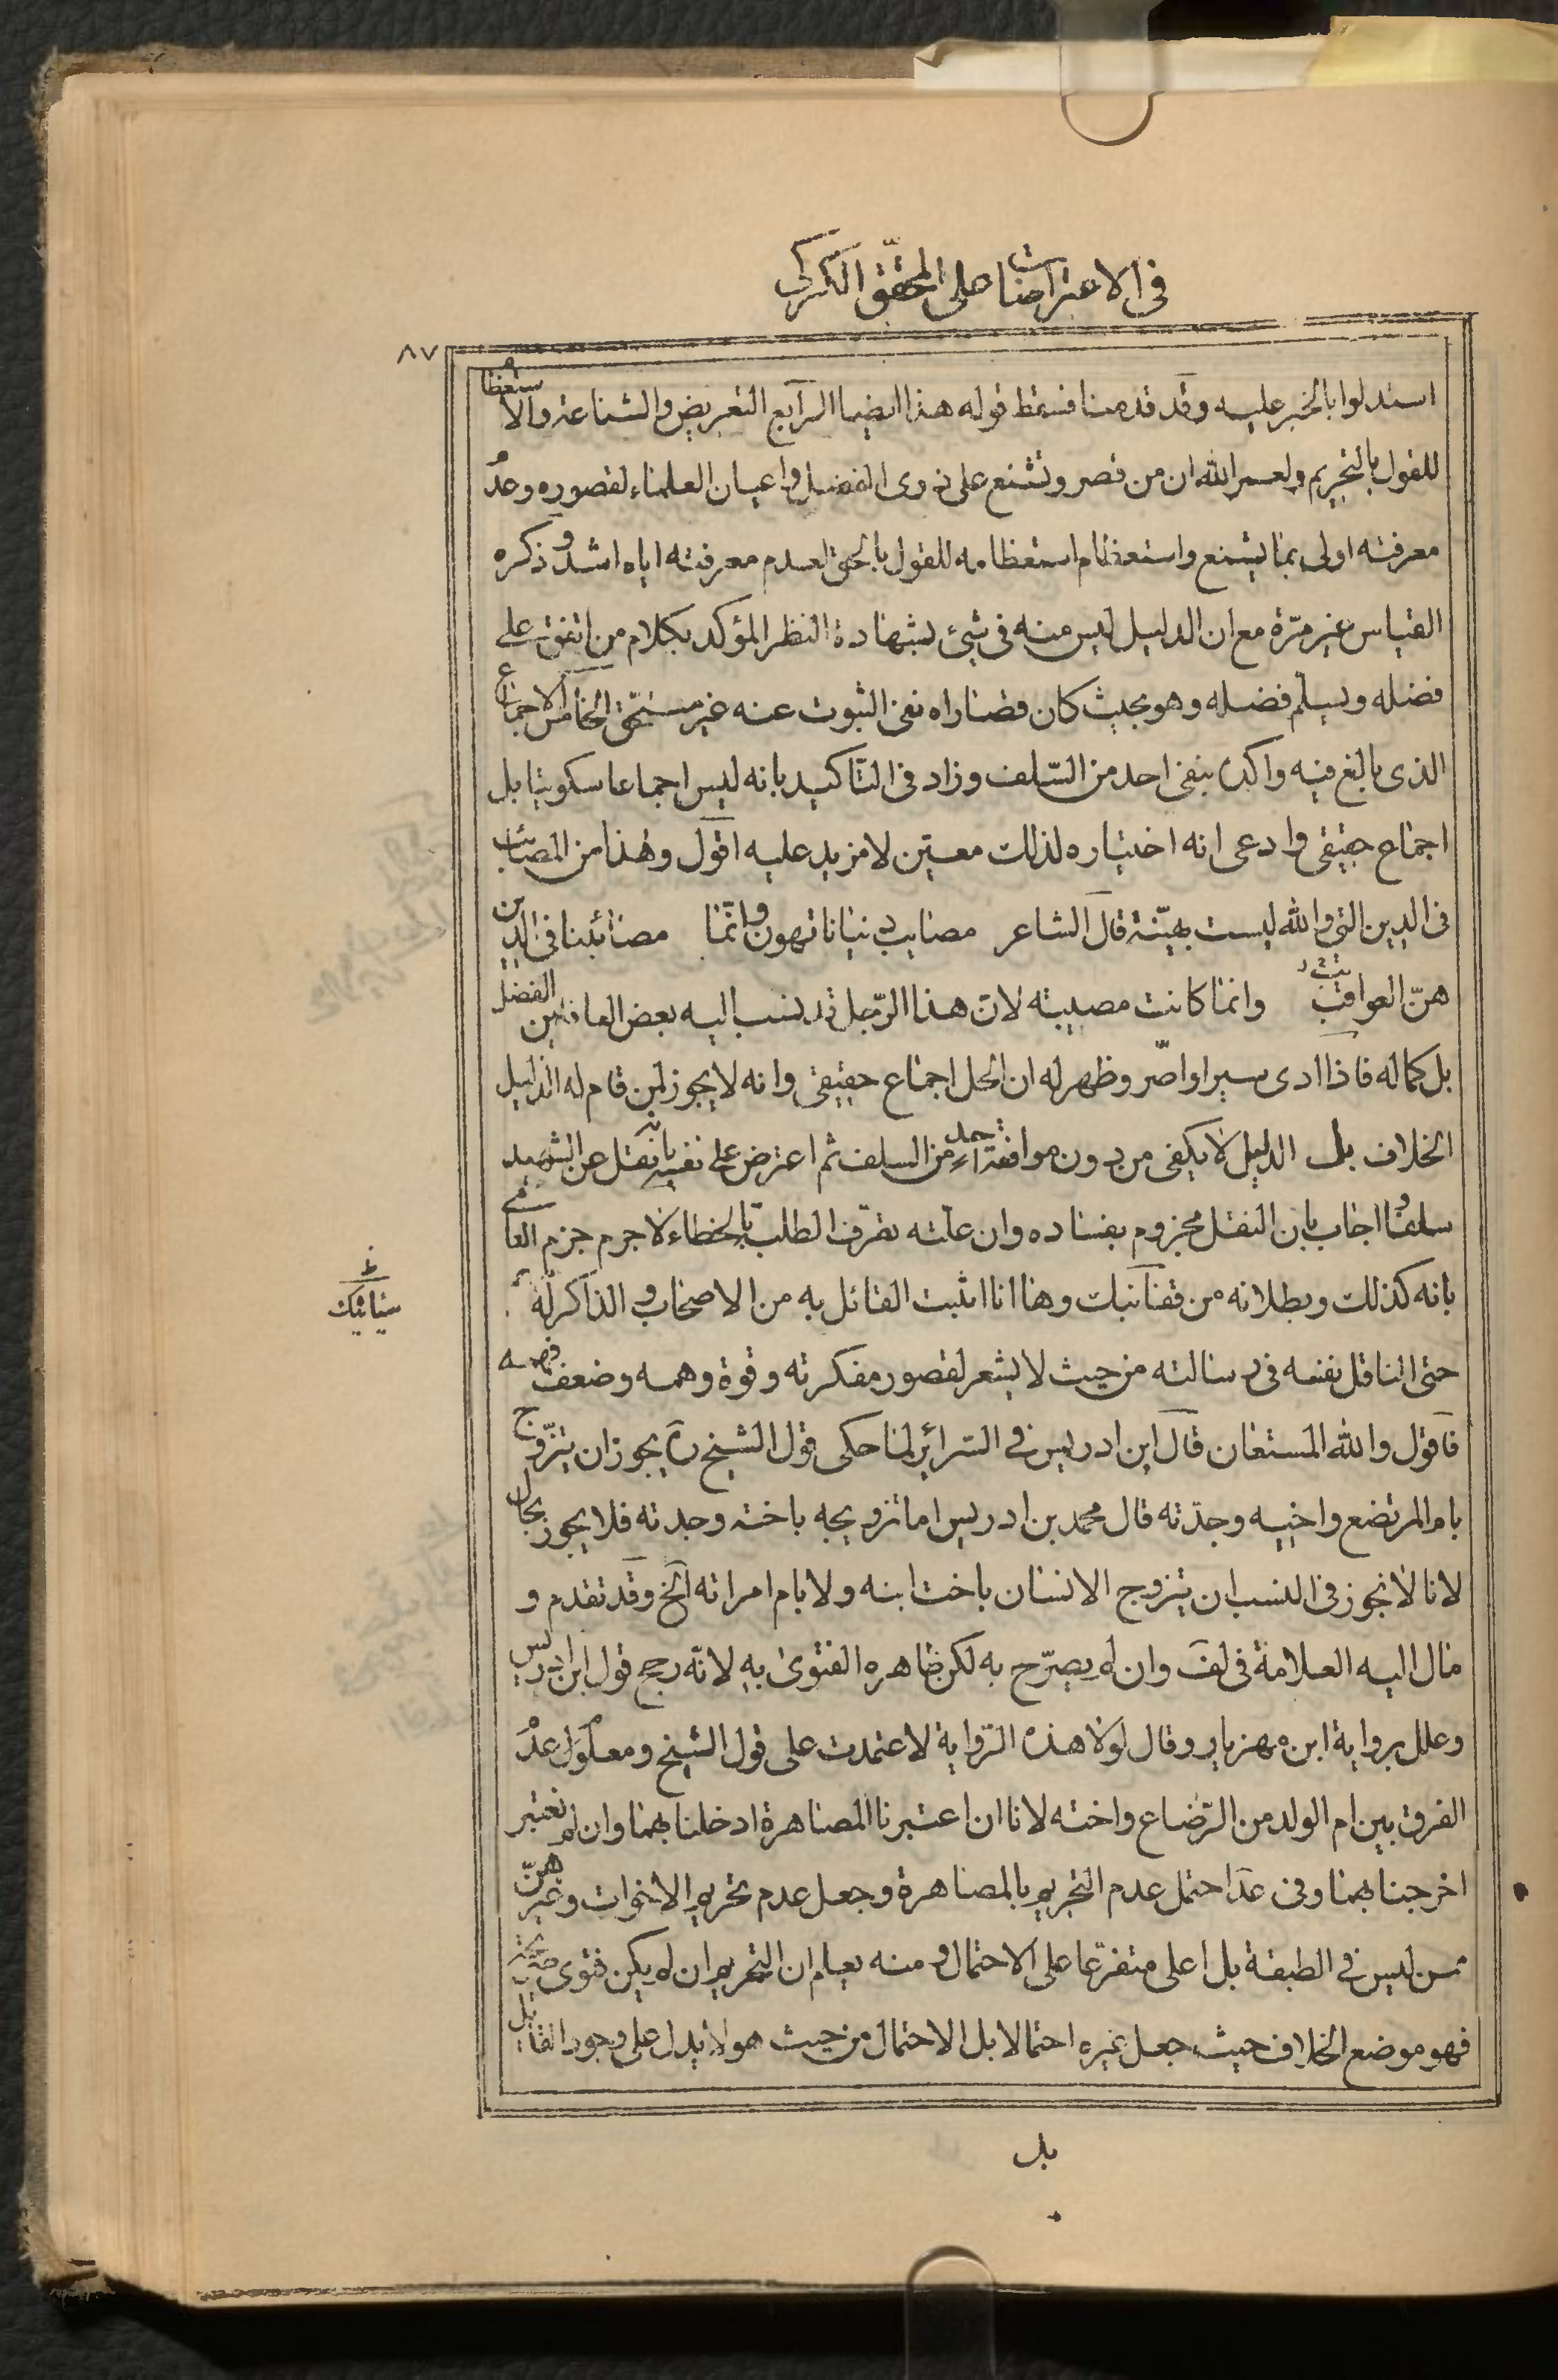 في الاعتراضات على المحقق الكركي
٨٧
استدلوا بالخبر عليه وقد قدمنا فسقط قوله هذا ايضا الرابع التعريض والشناعة والاستعظام
للقول بالتحريم ولعمر الله ان من قصر وتشنع على ذوى الفضل واعيان العلماء لقصوره وعدم
معرفته اولى بما يشنع واستعظام استعظامه للقول بالحق لعدم معرفته اياه اشد وذكره
القياس غير مرة مع ان الدليل ليس منه في شيئ بشهادة النظر المؤكد بكلام من اتفق على
فضله ويسلم فضله وهو بحيث كان قصاراه نفى الثبوت عنه غير مستحق الخامس الاجماع
الذى بالغ فيه واكده بنفى احد من السّلف وزاد في التاكيد بانه ليس اجماعا سكوتيا بل
اجماع حقيقى وادعى انه اختياره لذلك معين لا مزيد عليه اقول وهذا من المصائب
في الدين التى والله ليست بهيّنة قال الشاعر مصايب دنيانا تهون وانّما مصائبنا في الدين
هنّ العواقب وانما كانت مصيبته لان هذا الرّجل قد ينسب اليه بعض العارفين الفضل
بل كماله فاذا ادى سيرا واصّر وظهر له ان الحل اجماع حقيقى وانه لا يجوز لمن قام له الدليل
الخلاف بل الدليل لا يكفى من دون موافقة احد من السلف ثم اعترض على نفسه بانه نقل عن الشهيد
سلفا واجاب بان النقل مجزوم بفساده وان علته تقرف الطلبة بالخطاء لا جرم جزم العاشى
بانه كذلك وبطلانه من قفانبك وها انا اثبت القائل به من الاصحاب و الذاكر له
ظ
سيأتيك
حتى الناقل نفسه في رسالته من حيث لا يشعر لقصور مفكرته وقوة وهمه وضعف فهمه
فاقول والله المستعان قال ابن ادريس في السرائر لما حكى قول الشيخ ره يجوز ان يتزوج
بام المرتضع واخيه وجدّته قال محمد بن ادريس اما تزويجه باخته وجدته فلا يجوز بحال
لانا لا نجوز في النسب ان يتزوج الانسان باخت ابنه ولا بام امراته الخ وقد تقدم و
مال اليه العلامة في لف وان لم يصرّح به لكن ظاهره الفتوى به لانّه رجح قول ابن ادريس
وعلل برواية ابن مهزيار وقال لولا هذه الرّواية لاعتمدت على قول الشيخ ومعلول عدم
الفرق بين ام الولد من الرّضاع واخته لانا ان اعتبرنا المصاهرة ادخلناهما وان لم نعتبر
اخرجناهما وفي عد احتمل عدم التحريم بالمصاهرة وجعل عدم تحريم الاخوات وغيرهنّ
ممن ليس في الطبقة بل اعلى متفرعا على الاحتمال ومنه يعلم ان التحريم ان لم يكن فتوى صريحة
فهو موضع الخلاف حيث جعل غيره احتمالا بل الاحتمال من حيث هو لا يدل على وجود القائل
بل